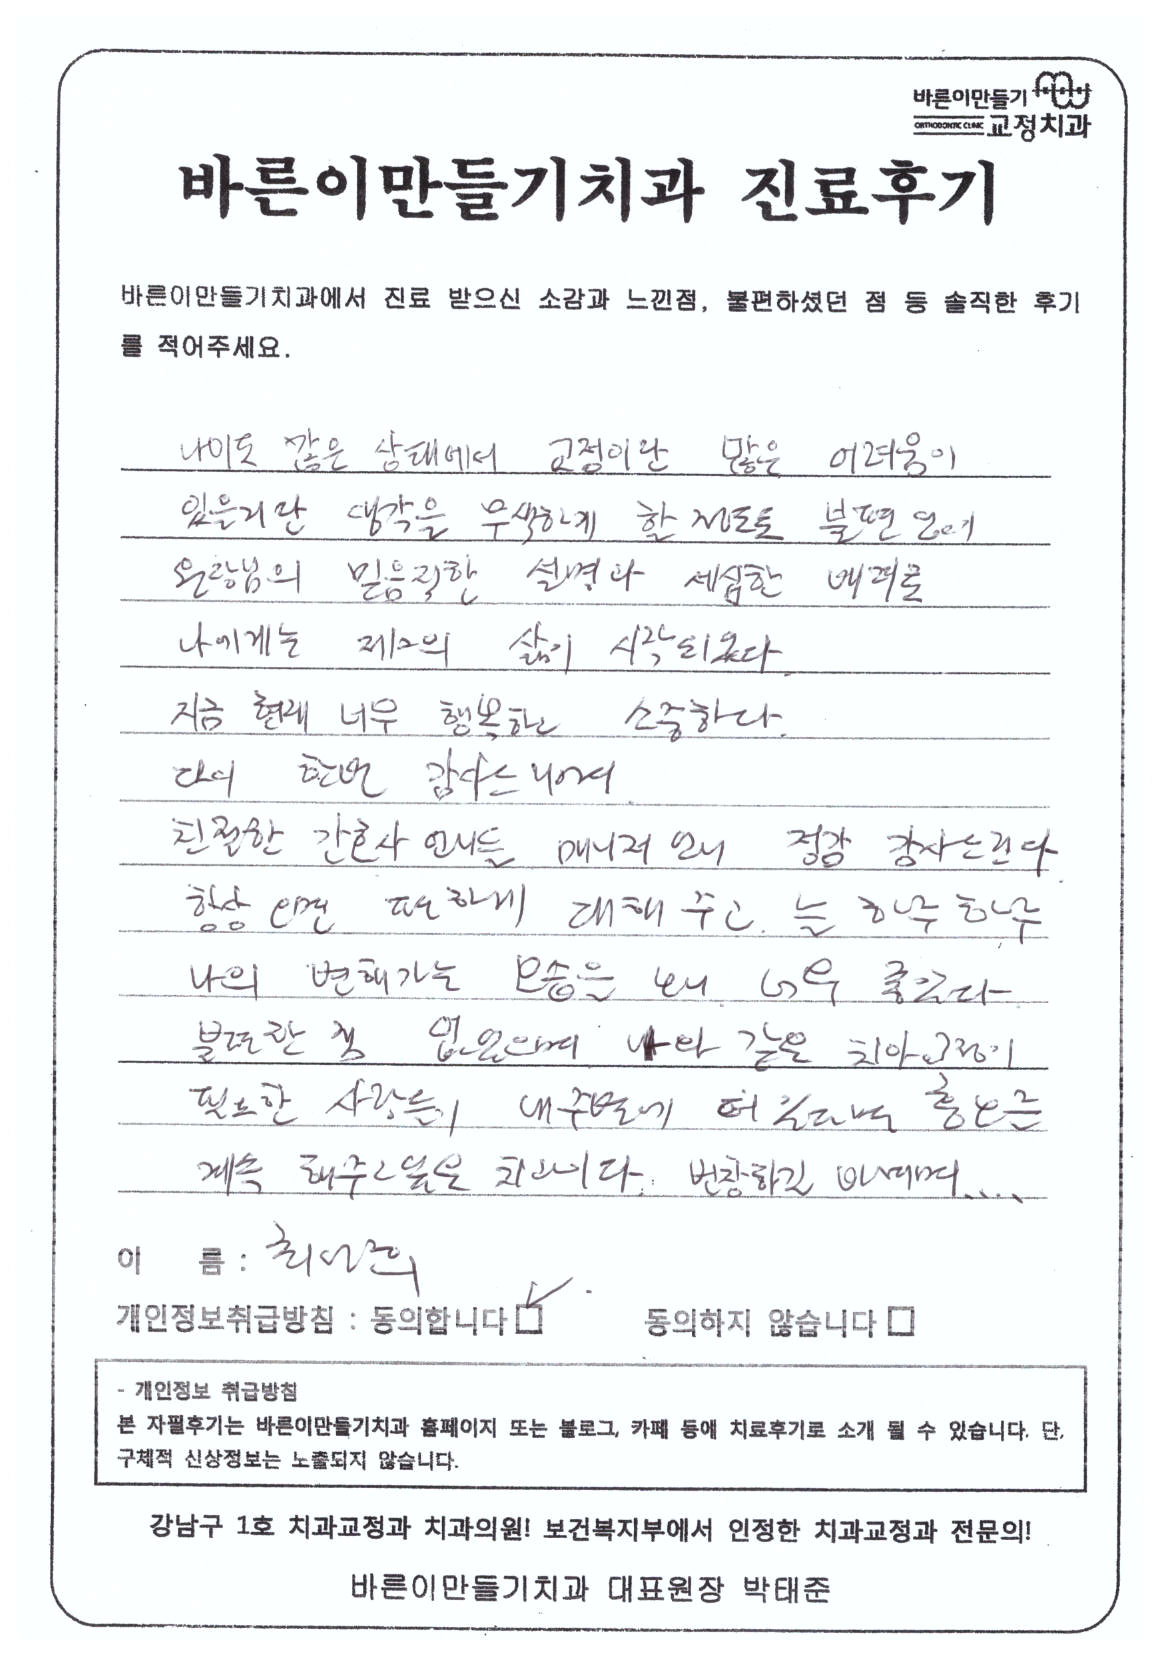 바른이만들기
ORTHODONTIC CLINIC 교정치과
바른이만들기치과 진료후기
바른이만들기치과에서 진료 받으신 소감과 느낀점, 불편하셨던 점 등 솔직한 후기
를 적어주세요.
나이도 많은 상태에서 교정이란 많은 어려움이
있을거란 생각을 무색하게 할 정도로 불편 없이
원장님의 믿음직한 설명과 세심한 배려로
나에게는 제2의 삶이 시작되었다
지금 현재 너무 행복하고 소중하다.
다시 한번 감사드리며
친절한 간호사 언니들 매니저 언니 정말 감사드린다
항상 편하게 대해 주고. 늘 하루 하루
나의 변해가는 모습을 보니 너무 좋았다
불편한 점 없었으며 나와 같은 치아교정이
필요한 사람들이 내주변에 있다면 홍보를
계속 해주고싶은 치과이다. 번창하길 바라며....
이 름 :
개인정보취급방침 : 동의합니다 동의하지 않습니다
- 개인정보 취급방침
본 자필후기는 바른이만들기치과 홈페이지 또는 블로그, 카페 등에 치료후기로 소개 될 수 있습니다. 단,
구체적 신상정보는 노출되지 않습니다.
강남구 1호 치과교정과 치과의원! 보건복지부에서 인정한 치과교정과 전문의!
바른이만들기치과 대표원장 박태준